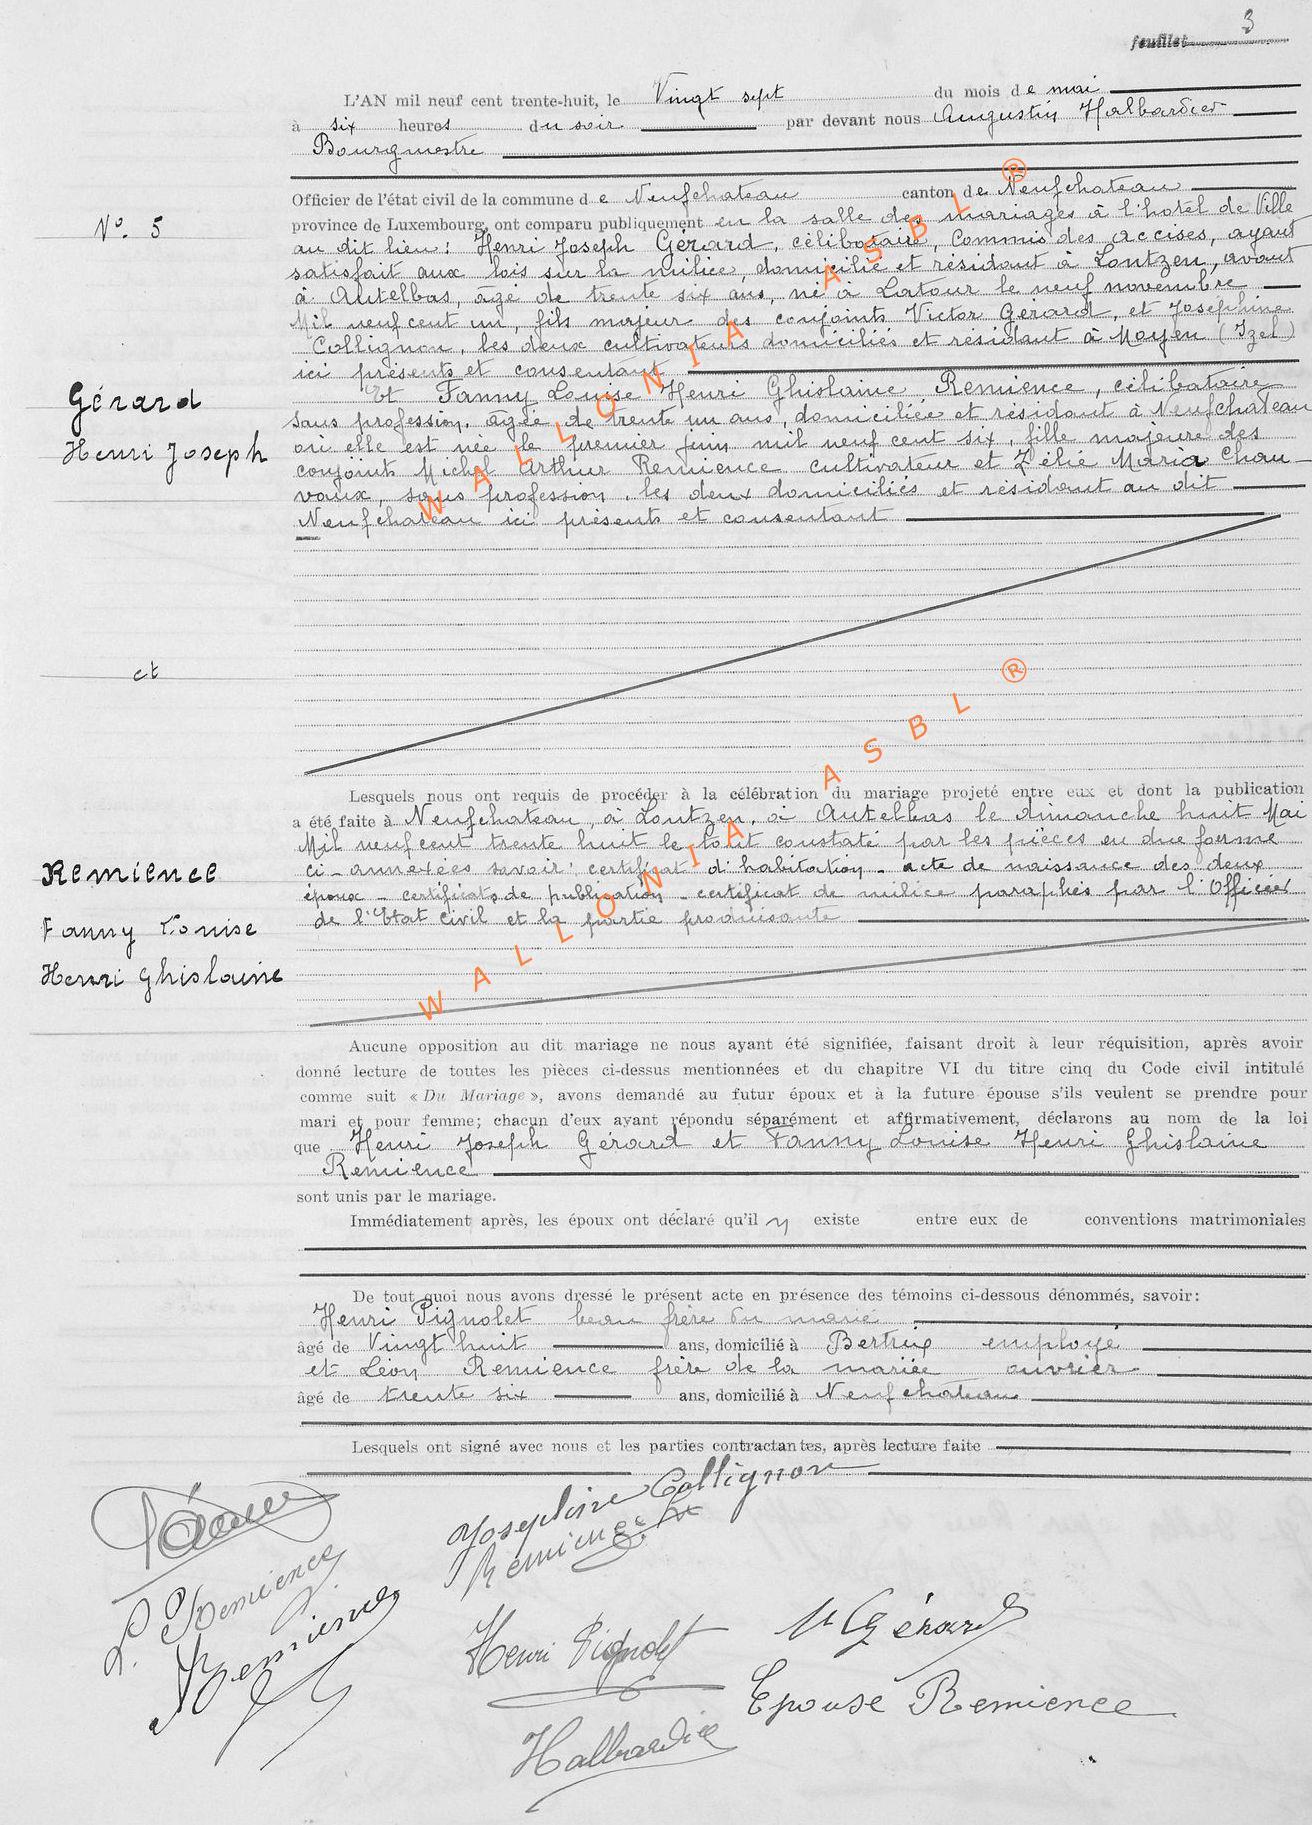 feuillet 3
L'AN mil neuf cent trente-huit, le Vingt sept du mois de mai
à six heures du soir par devant nous Augustin Halbardier
Bourgmestre
Officier de l'état civil de la commune de Neufchateau canton de Neufchateau
N° 5
province de Luxembourg, ont comparu publiquement en la salle des mariages à l'hotel de Ville
au dit lieu : Henri Joseph Gérard, célibataire, Commis des accises, ayant
satisfait aux lois sur la milice, domicilié et résidant à Lontzen, avant
à Autelbas, âgé de trente six ans, né à Latour le neuf novembre
Mil neuf cent un, fils majeur des conjoints Victor Gérard, et Joséphine
Collignon, les deux cultivateurs domiciliés et résidant à Moyen (Izel)
ici présents et consentant
Gérard
Henri Joseph
Et Fanny Louise Henri Ghislaine Remience, célibataire
sans profession, âgée de trente un ans, domiciliée et résidant à Neufchateau
où elle est née le premier juin mil neuf cent six, fille majeure des
conjoints Michel Arthur Remience cultivateur et Zélie Maria Chau-
vaux, sans profession, les deux domiciliés et résidant au dit
Neufchateau ici présents et consentant
et
Lesquels nous ont requis de procéder à la célébration du mariage projeté entre eux et dont la publication
a été faite à Neufchateau, à Lontzen, à Autelbas le dimanche huit Mai
Mil neuf cent trente huit le tout constaté par les pièces en due forme
ci-annexées savoir : certificat d'habitation - acte de naissance des deux
époux - certificats de publication - certificat de milice paraphés par l'Officier
de l'Etat civil et la partie produisante
Remience
Fanny Louise
Henri Ghislaine
Aucune opposition au dit mariage ne nous ayant été signifiée, faisant droit à leur réquisition, après avoir
donné lecture de toutes les pièces ci-dessus mentionnées et du chapitre VI du titre cinq du Code civil intitulé
comme suit « Du Mariage », avons demandé au futur époux et à la future épouse s'ils veulent se prendre pour
mari et pour femme; chacun d'eux ayant répondu séparément et affirmativement, déclarons au nom de la loi
que Henri Joseph Gérard et Fanny Louise Henri Ghislaine
Remience
sont unis par le mariage.
Immédiatement après, les époux ont déclaré qu'il n existe entre eux de conventions matrimoniales
De tout quoi nous avons dressé le présent acte en présence des témoins ci-dessous dénommés, savoir:
Henri Pignolet beau frère du marié
âgé de Vingt huit ans, domicilié à Bertrix employé
et Léon Remience frère de la mariée ouvrier
âgé de trente six ans, domicilié à Neufchateau
Lesquels ont signé avec nous et les parties contractantes, après lecture faite
Joséphine Collignon
Remience
L. Remience
Remience
Henri Pignolet
Gérard
Epouse Remience
Halbardier
WALLONIA ASBL ®
WALLONIA ASBL ®